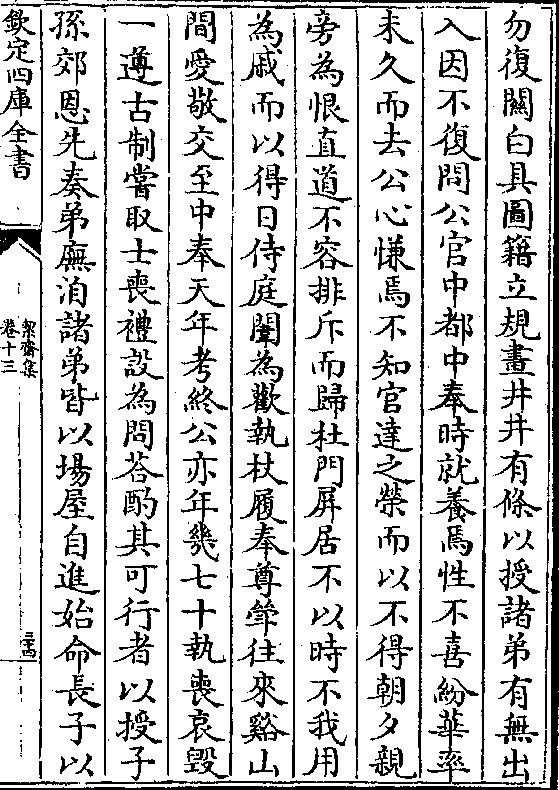 勿復關白具圖籍立規畫井井有條以授諸弟有無出
入因不復問公官中都中奉時就養焉性不喜紛華率
未久而去公心慊焉不知官達之榮而以不得朝夕親
旁為恨直道不容排斥而歸杜門屏居不以時不我用
為戚而以得日侍庭闈為歡執杖屨奉尊斝往來谿山
間愛敬交至中奉天年考終公亦年幾七十執喪哀毁
一遵古制嘗取士喪禮設為問荅酌其可行者以授子
孫郊恩先奏弟廡洎諸弟皆以場屋自進始命長子以
欽定四庫全書
絜齋集
卷十三
二十四